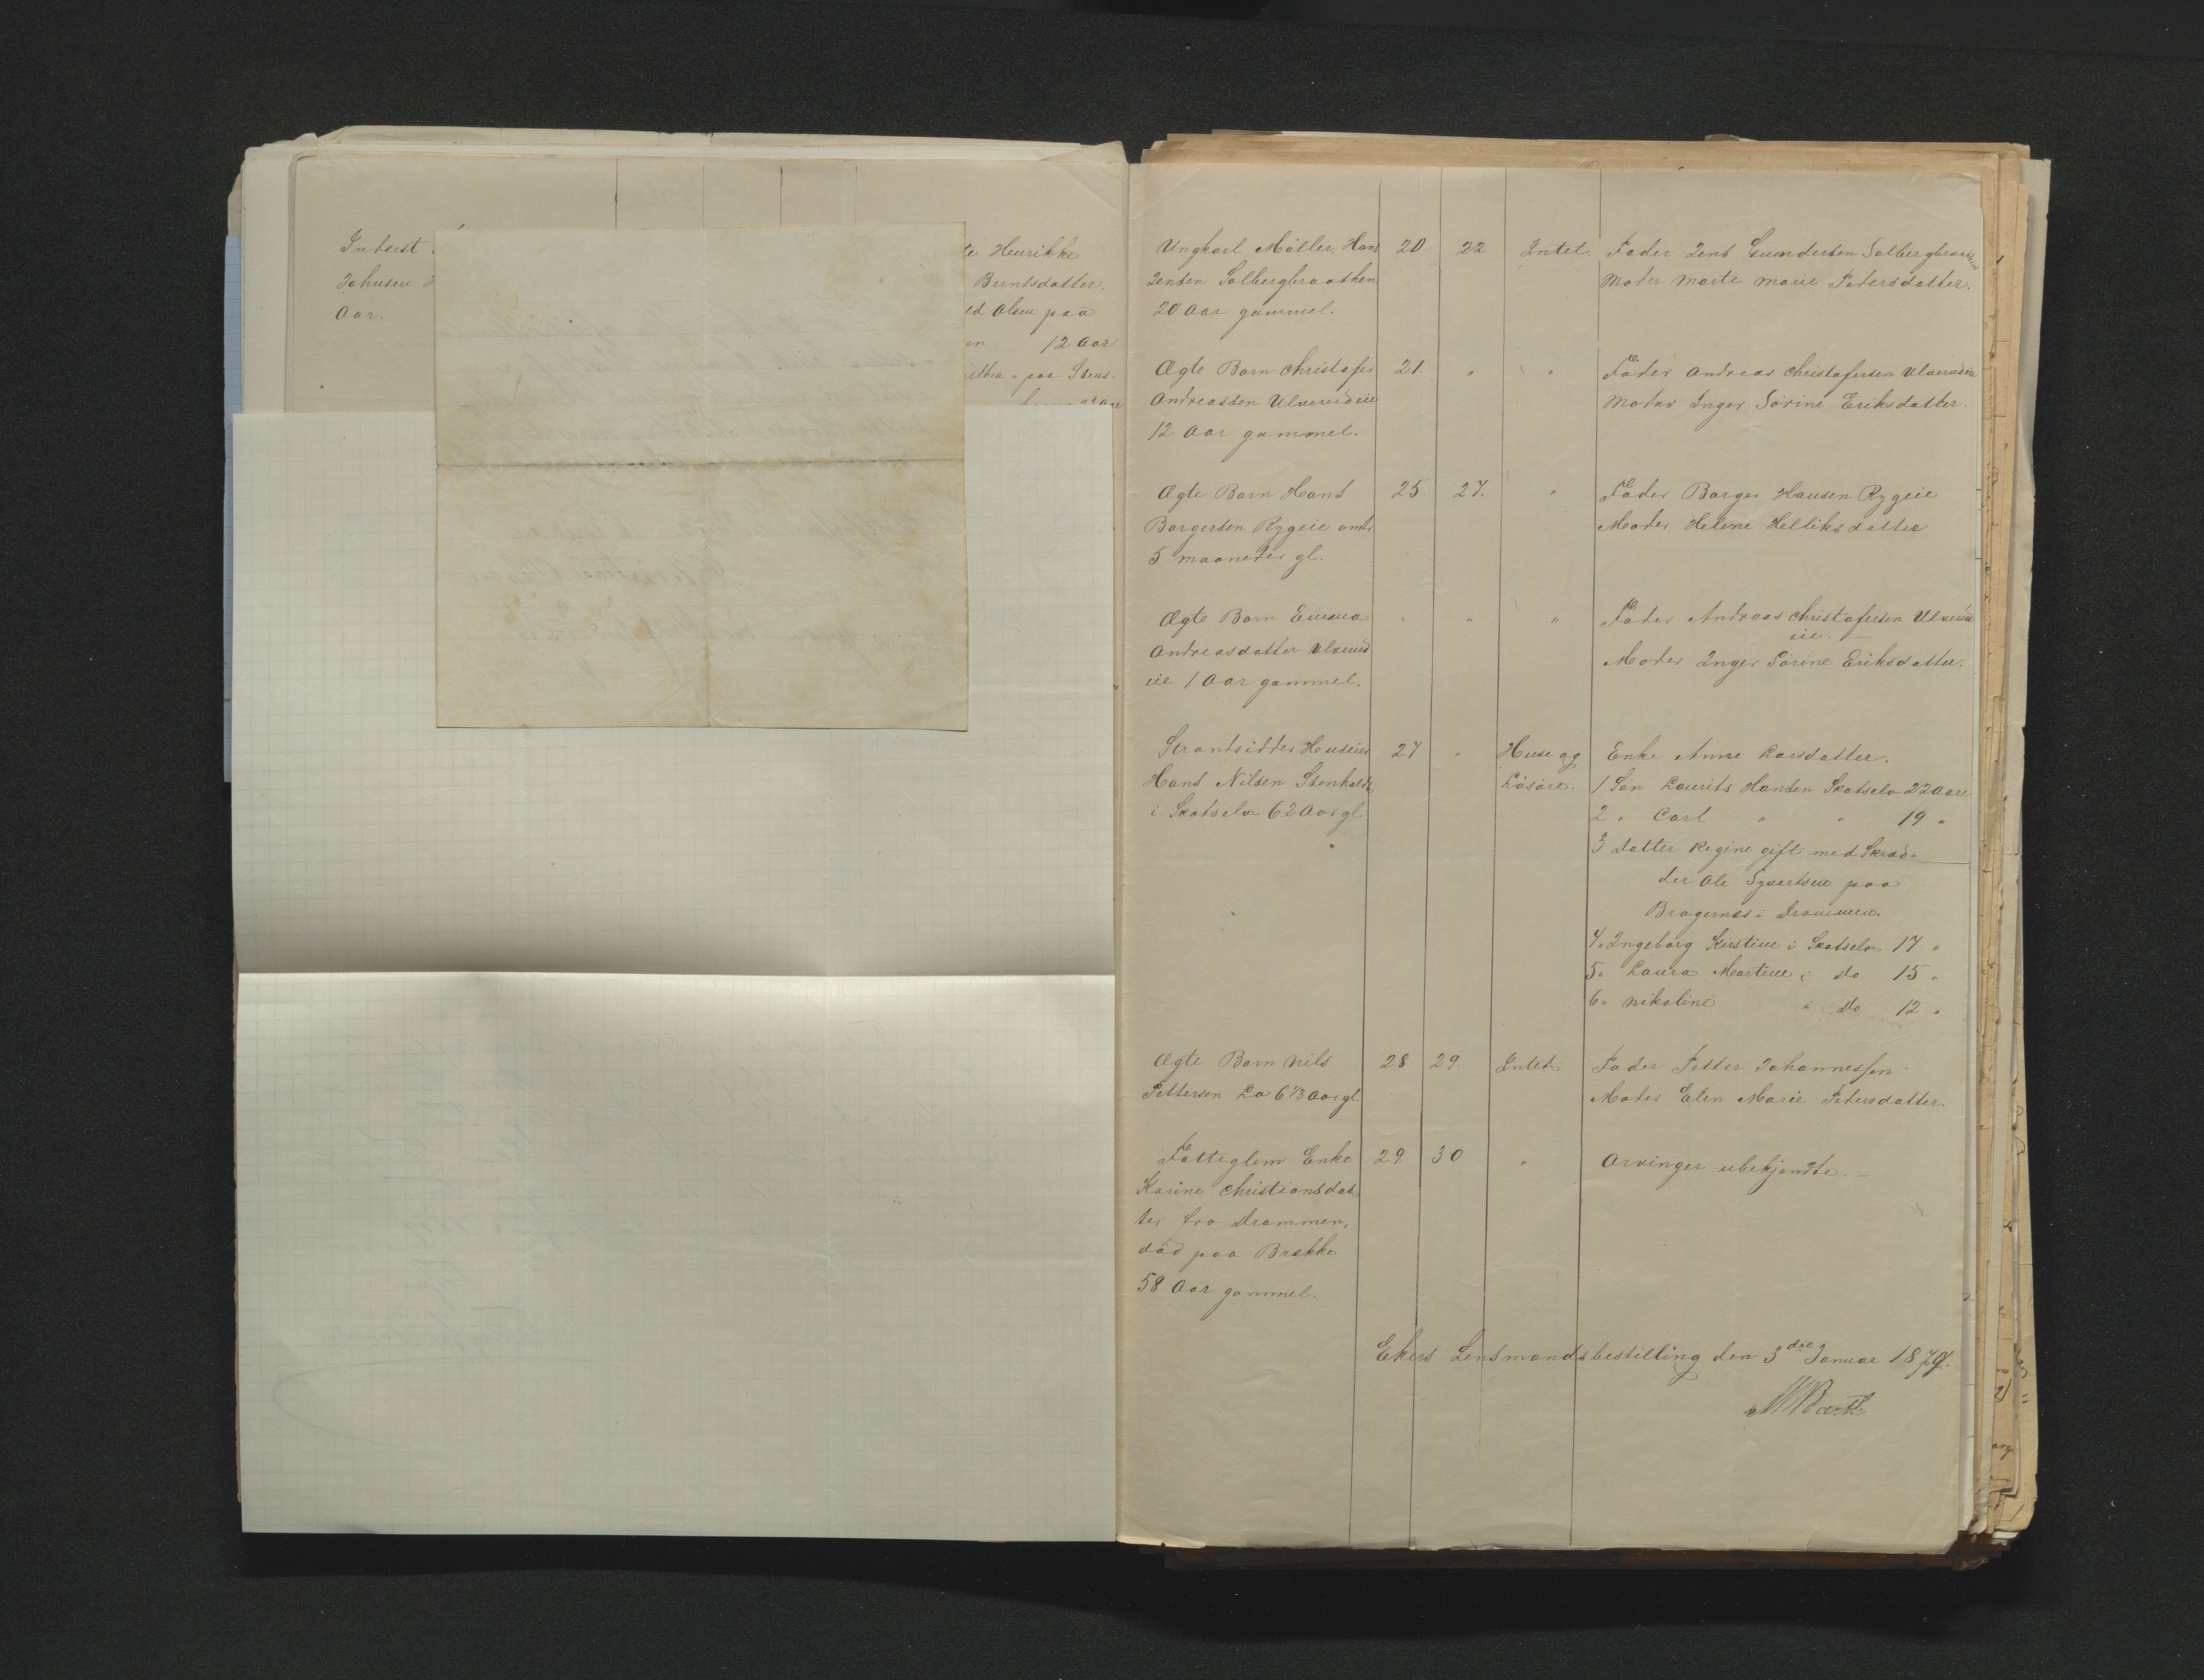 Inderst
Johnsen
Aar.
Henrikke
Berntsdatter.
ed Olsen paa
en 12 Aar
paa Stens-
Ungkarl Møller, Hans 20 22 Intet. Fader Jens Gundersen Solbergbraathen
Jensen Solbergbraathen Moder Marte Marie Petersdatter.
20 Aar gammel.
Ægte Barn Christofer 21. " " Fader Andreas Christofersen Ulverudeie
Andreassen Ulverudeie Moder Inger Sørine Eriksdatter.
12 Aar gammel.
Ægte Barn Hans 25. 27. " Fader Borger Hansen Rygeie
Borgersen Rygeie omtr Moder Helene Helliksdatter
5 maaneder gl.
Ægte Barn Emma " " " Fader Andreas Christofersen Ulverud
eie.
Andreasdatter Ulverud Moder Inger Sørine Eriksdatter.
eie 1 Aar gammel.
Strandsidder Huseier 27 " Huse og Enke Anne Larsdatter.
Hans Nilsen Stenhalde Løsøre. 1 Søn Laurits Hansen Skotselv 22 Aar
i Skotselv 62 Aar gl 2 " Carl " " 19 "
3 Datter Regine gift med Skræd-
der Ole Syvertsen paa
Bragernes i Drammen.
4 " Ingeborg Kirstine i Skotselv 17 "
5 " Laura Martine i do 15 "
6 " Nikoline i do 12 "
Ægte Barn Nils 28 29. Intet. Fader Petter Johannessen
Pettersen Lo 6 1/3 Aar gl. Moder Elen Marie Petersdatter.
Fattiglem Enke 29. 30 " Arvinger ubekjendte.
Karine Christiansdat
ter fra Drammen,
død paa Brække
58 Aar gammel.
Ekers Lensmandsbestilling den 3die Januar 1879.